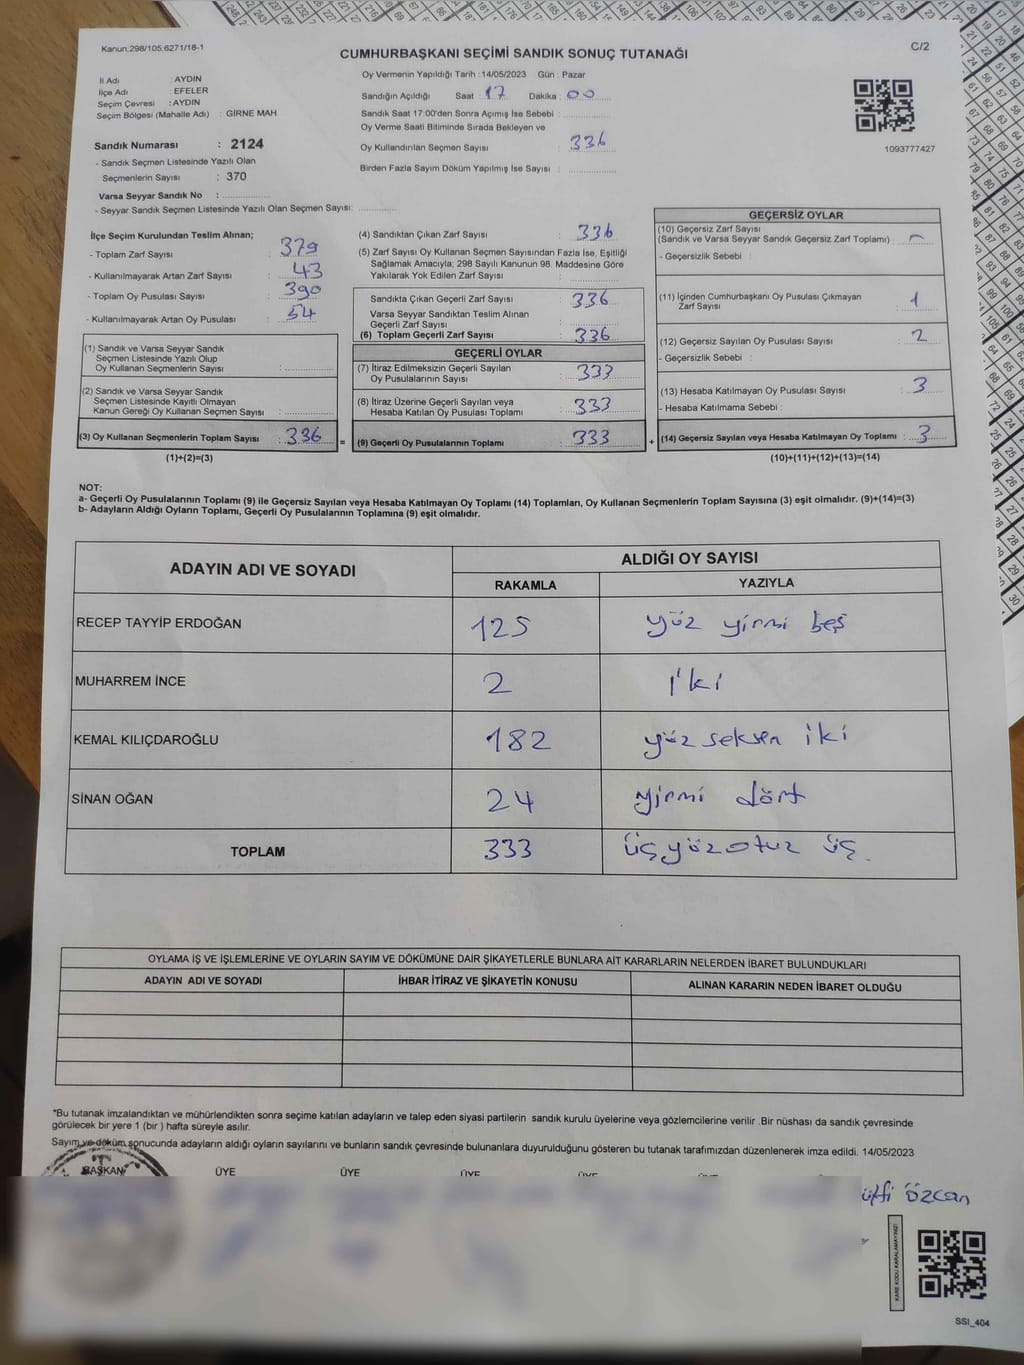 Kanun;298/105,6271/18-1
CUMHURBAŞKANI SEÇİMİ SANDIK SONUÇ TUTANAĞI
C/2
İl Adı : AYDIN
İlçe Adı : EFELER
Seçim Çevresi : AYDIN
Seçim Bölgesi (Mahalle Adı) : GİRNE MAH.
Sandık Numarası : 2124
- Sandık Seçmen Listesinde Yazılı Olan
Seçmenlerin Sayısı : 370
Varsa Seyyar Sandık No :
- Seyyar Sandık Seçmen Listesinde Yazılı Olan Seçmen Sayısı:
Oy Vermenin Yapıldığı Tarih : 14/05/2023 Gün : Pazar
Sandığın Açıldığı Saat : 17 Dakika : 00
Sandık Saat 17:00'den Sonra Açımış İse Sebebi :
Oy Verme Saati Bitiminde Sırada Bekleyen ve
Oy Kullandırılan Seçmen Sayısı : 336
Birden Fazla Sayım Döküm Yapılmış İse Sayısı :
1093777427
İlçe Seçim Kurulundan Teslim Alınan;
- Toplam Zarf Sayısı : 379
- Kullanılmayarak Artan Zarf Sayısı : 43
- Toplam Oy Pusulası Sayısı : 390
- Kullanılmayarak Artan Oy Pusulası : 54
(1) Sandık ve Varsa Seyyar Sandık
Seçmen Listesinde Yazılı Olup
Oy Kullanan Seçmenlerin Sayısı :
(2) Sandık ve Varsa Seyyar Sandık
Seçmen Listesinde Kayıtlı Olmayan
Kanun Gereği Oy Kullanan Seçmen Sayısı :
(3) Oy Kullanan Seçmenlerin Toplam Sayısı : 336 =
(1)+(2)=(3)
(4) Sandıktan Çıkan Zarf Sayısı : 336
(5) Zarf Sayısı Oy Kullanan Seçmen Sayısından Fazla İse, Eşitliği
Sağlamak Amacıyla; 298 Sayılı Kanunun 98. Maddesine Göre
Yakılarak Yok Edilen Zarf Sayısı :
Sandıkta Çıkan Geçerli Zarf Sayısı : 336
Varsa Seyyar Sandıktan Teslim Alınan
Geçerli Zarf Sayısı :
(6) Toplam Geçerli Zarf Sayısı : 336
GEÇERLİ OYLAR
(7) İtiraz Edilmeksizin Geçerli Sayılan
Oy Pusulalarının Sayısı : 333
(8) İtiraz Üzerine Geçerli Sayılan veya
Hesaba Katılan Oy Pusulası Toplamı : 333
(9) Geçerli Oy Pusulalarının Toplamı : 333 +
GEÇERSİZ OYLAR
(10) Geçersiz Zarf Sayısı
(Sandık ve Varsa Seyyar Sandık Geçersiz Zarf Toplamı) :
- Geçersizlik Sebebi :
(11) İçinden Cumhurbaşkanı Oy Pusulası Çıkmayan
Zarf Sayısı : 1
(12) Geçersiz Sayılan Oy Pusulası Sayısı : 2
- Geçersizlik Sebebi :
(13) Hesaba Katılmayan Oy Pusulası Sayısı : 3
- Hesaba Katılmama Sebebi :
(14) Geçersiz Sayılan veya Hesaba Katılmayan Oy Toplamı : 3
(10)+(11)+(12)+(13)=(14)
NOT:
a- Geçerli Oy Pusulalarının Toplamı (9) ile Geçersiz Sayılan veya Hesaba Katılmayan Oy Toplamı (14) Toplamları, Oy Kullanan Seçmenlerin Toplam Sayısına (3) eşit olmalıdır. (9)+(14)=(3)
b- Adayların Aldığı Oyların Toplamı, Geçerli Oy Pusulalarının Toplamına (9) eşit olmalıdır.
ADAYIN ADI VE SOYADI
ALDIĞI OY SAYISI
RAKAMLA YAZIYLA
RECEP TAYYİP ERDOĞAN 125 yüz yirmi beş
MUHARREM İNCE 2 iki
KEMAL KILIÇDAROĞLU 182 yüz seksen iki
SİNAN OĞAN 24 yirmi dört
TOPLAM 333 üçyüzotuz üç.
OYLAMA İŞ VE İŞLEMLERİNE VE OYLARIN SAYIM VE DÖKÜMÜNE DAİR ŞİKAYETLERLE BUNLARA AİT KARARLARIN NELERDEN İBARET BULUNDUKLARI
ADAYIN ADI VE SOYADI İHBAR İTİRAZ VE ŞİKAYETİN KONUSU ALINAN KARARIN NEDEN İBARET OLDUĞU
*Bu tutanak imzalandıktan ve mühürlendikten sonra seçime katılan adayların ve talep eden siyasi partilerin sandık kurulu üyelerine veya gözlemcilerine verilir .Bir nüshası da sandık çevresinde
görülecek bir yere 1 (bir ) hafta süreyle asılır.
Sayım ve döküm sonucunda adayların aldığı oyların sayılarını ve bunların sandık çevresinde bulunanlara duyurulduğunu gösteren bu tutanak tarafımızdan düzenlenerek imza edildi. 14/05/2023
BAŞKAN ÜYE ÜYE ÜYE
özcan
KARE KODU KARALAMAYINIZ!
SSI_404